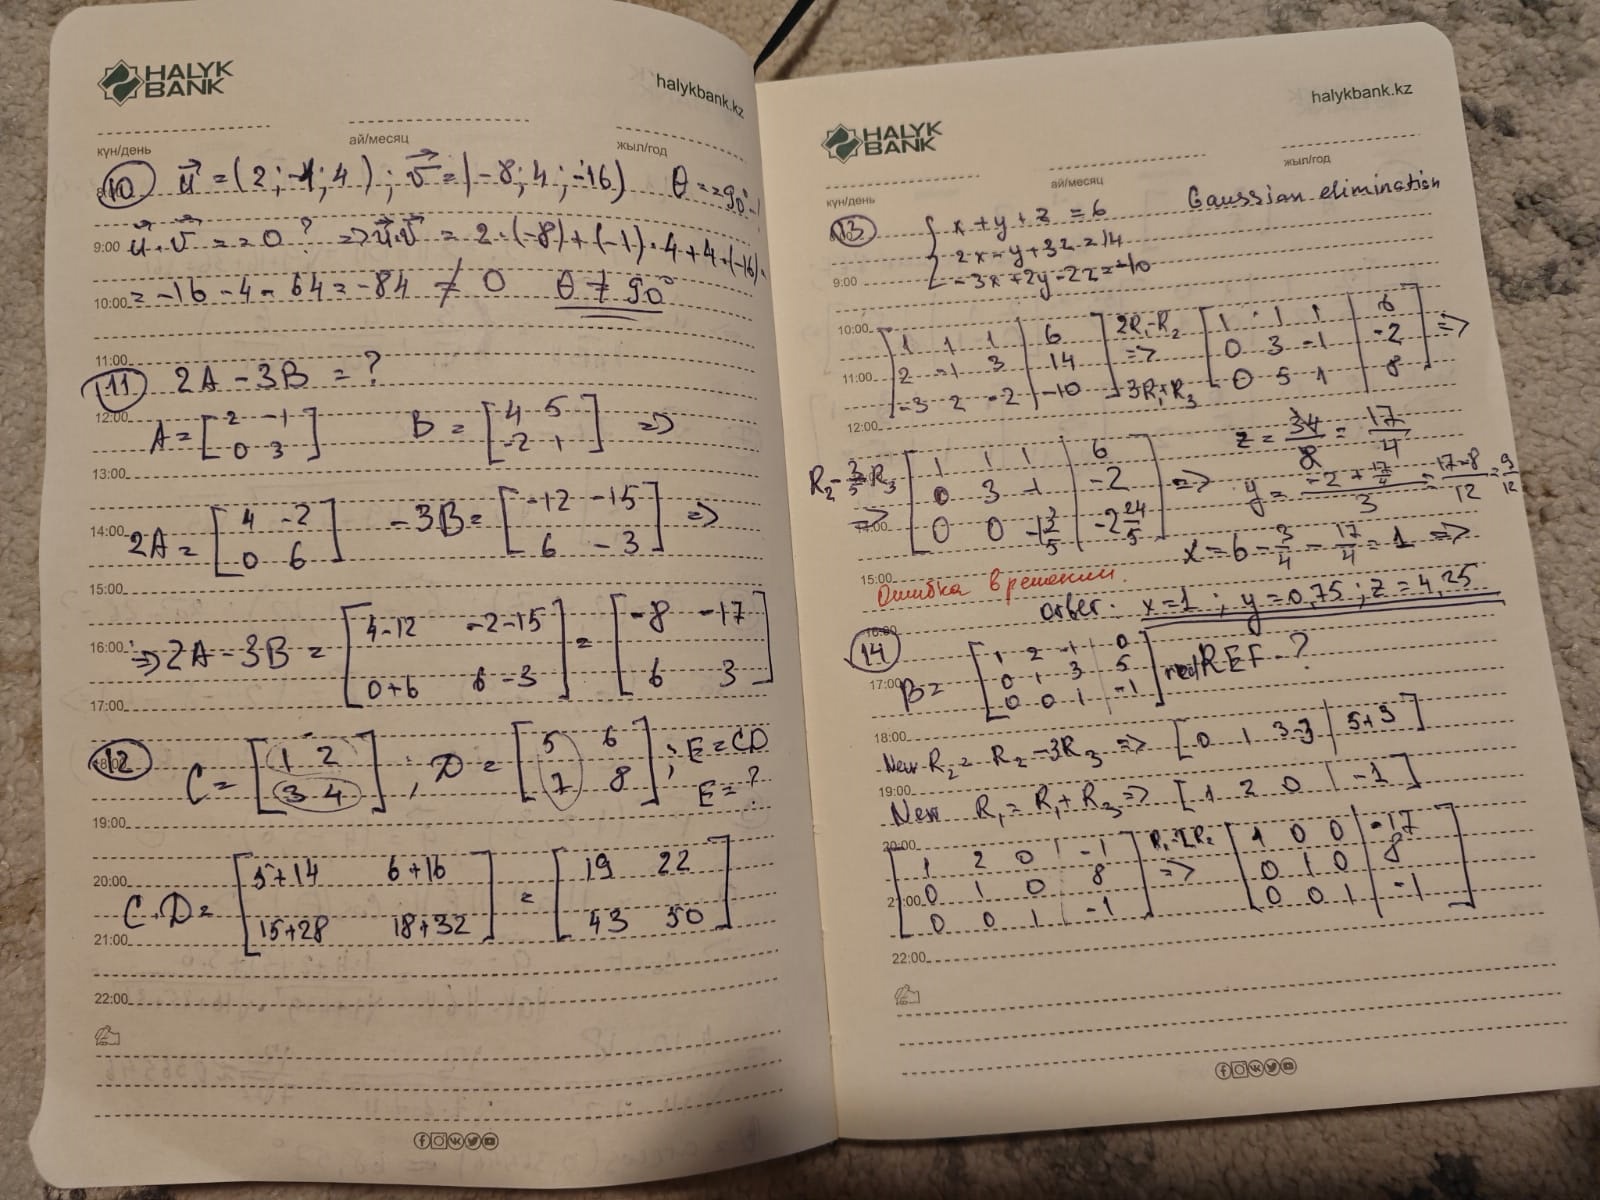 HALYK
BANK
halykbank.kz
күн/день
ай/месяц
жыл/год
8:00
10 u = (2; -1; 4); v = (-8; 4; -16) θ == 90°-?
9:00 u·v == 0? => u·v = 2·(-8)+(-1)·4+4·(-16)=
10:00 = -16-4-64 = -84 ≠ 0 θ ≠ 90°
11:00
11 2A-3B = ?
12:00
A = [2 -1; 0 3] B = [4 5; -2 1] =>
13:00
14:00
2A = [4 -2; 0 6] -3B = [-12 -15; 6 -3] =>
15:00
16:00 => 2A-3B = [4-12 -2-15; 0+6 6-3] = [-8 -17; 6 3]
17:00
18:00
12 C = [1 2; 3 4]; D = [5 6; 7 8]; E = CD
E = ?
19:00
20:00
C·D = [5+14 6+16; 15+28 18+32] = [19 22; 43 50]
21:00
22:00
HALYK
BANK
halykbank.kz
күн/день
ай/месяц
жыл/год
Gaussian elimination
13 { x+y+z = 6
2x-y+3z = 14
9:00 -3x+2y-2z = -10
10:00
[1 1 1 | 6; 2 -1 3 | 14; -3 2 -2 | -10] 2R₁-R₂ => 3R₁+R₃ [1 1 1 | 6; 0 3 -1 | -2; 0 5 1 | 8] =>
11:00
12:00
R₂-3/5R₃ => [1 1 1 | 6; 0 3 -1 | -2; 0 0 -1 3/5 | -2 24/5] => z = 34/8 = 17/4
y = (-2+17/4)/3 = (17-8)/12 = 9/12
14:00
x = 6-3/4-17/4 = 1 =>
15:00
Ошибка в решении.
ответ: x=1; y=0,75; z=4,25
16:00
14 B = [1 2 -1 0; 0 1 3 5; 0 0 1 -1] redREF-?
17:00
18:00
New R₂ = R₂-3R₃ => [0 1 3-3 | 5+3]
19:00
New R₁ = R₁+R₃ => [1 2 0 | -1]
20:00
[1 2 0 | -1; 0 1 0 | 8; 0 0 1 | -1] R₁-2R₂ => [1 0 0 | -17; 0 1 0 | 8; 0 0 1 | -1]
21:00
22:00